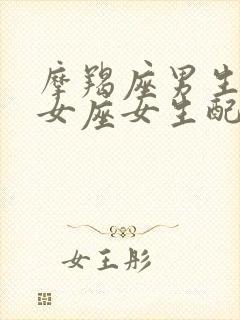 摩羯座男生
女座女生配
女王彤